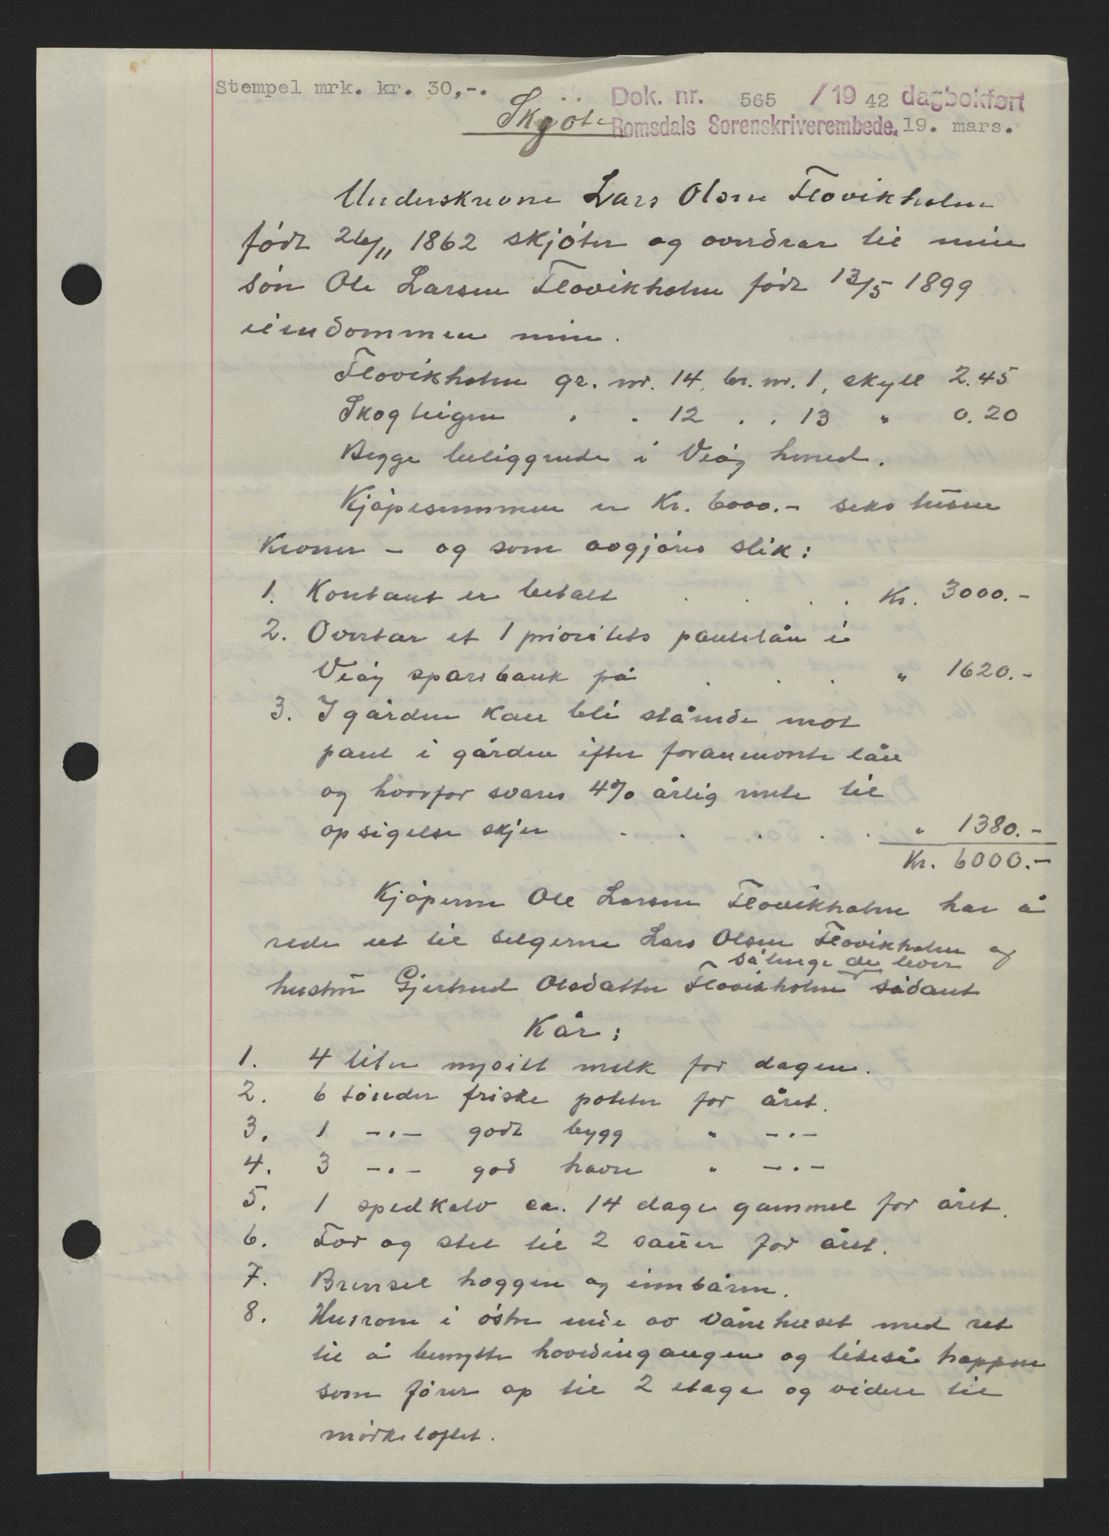 Stempel mrk. kr. 30,-.
Skjöte
Dok. nr. 565 /19 42 dagbokført
Romsdals Sorenskriverembede. 19. mars.
Underskrevne Lars Olsen Flovikholm
født 26/11 1862 skjöter og overdrar til min
sön Ole Larsen Flovikholm født 13/5 1899
eiendommen min.
Flovikholm gr. nr. 14, br. nr. 1, skyll 2.45
Skogteigen " " 12 " " 13 " 0.20
Begge beliggende i Veöy herred.
Kjöpesummen er Kr. 6000.- seks tusen
Kroner – og som avgjöres slik:
1. Kontant er betalt . . . . Kr. 3000.-
2. Overtar et 1 prioritets pantelån i
Veöy sparebank på . . . " 1620.-
3. I gården kan bli stående mot
pant i gården efter forannevnte lån
og hvorfor svares 4% årlig rente til
opsigelse skjer . . . . . " 1380.-
Kr. 6000.-
Kjöperen Ole Larsen Flovikholm har å
rede ut til selgerne Lars Olsen Flovikholm og
så lenge de lever
hustru Gjertrud Olsdatter Flovikholm sådant
Kår:
1. 4 liter nysilt melk for dagen.
2. 6 tönder friske poteter for året.
3. 1 -"- godt bygg " -"-
4. 3 -"- god havre " -"-
5. 1 spedkalv ca. 14 dage gammel for året.
6. For og stel til 2 sauer for året.
7. Brensel hoggen og innbåren.
8. Husrom i östre ende av vånehuset med ret
til å benytte hovedingangen og likeså trappen
som förer op til 2 etage og videre til
mörkeloftet.